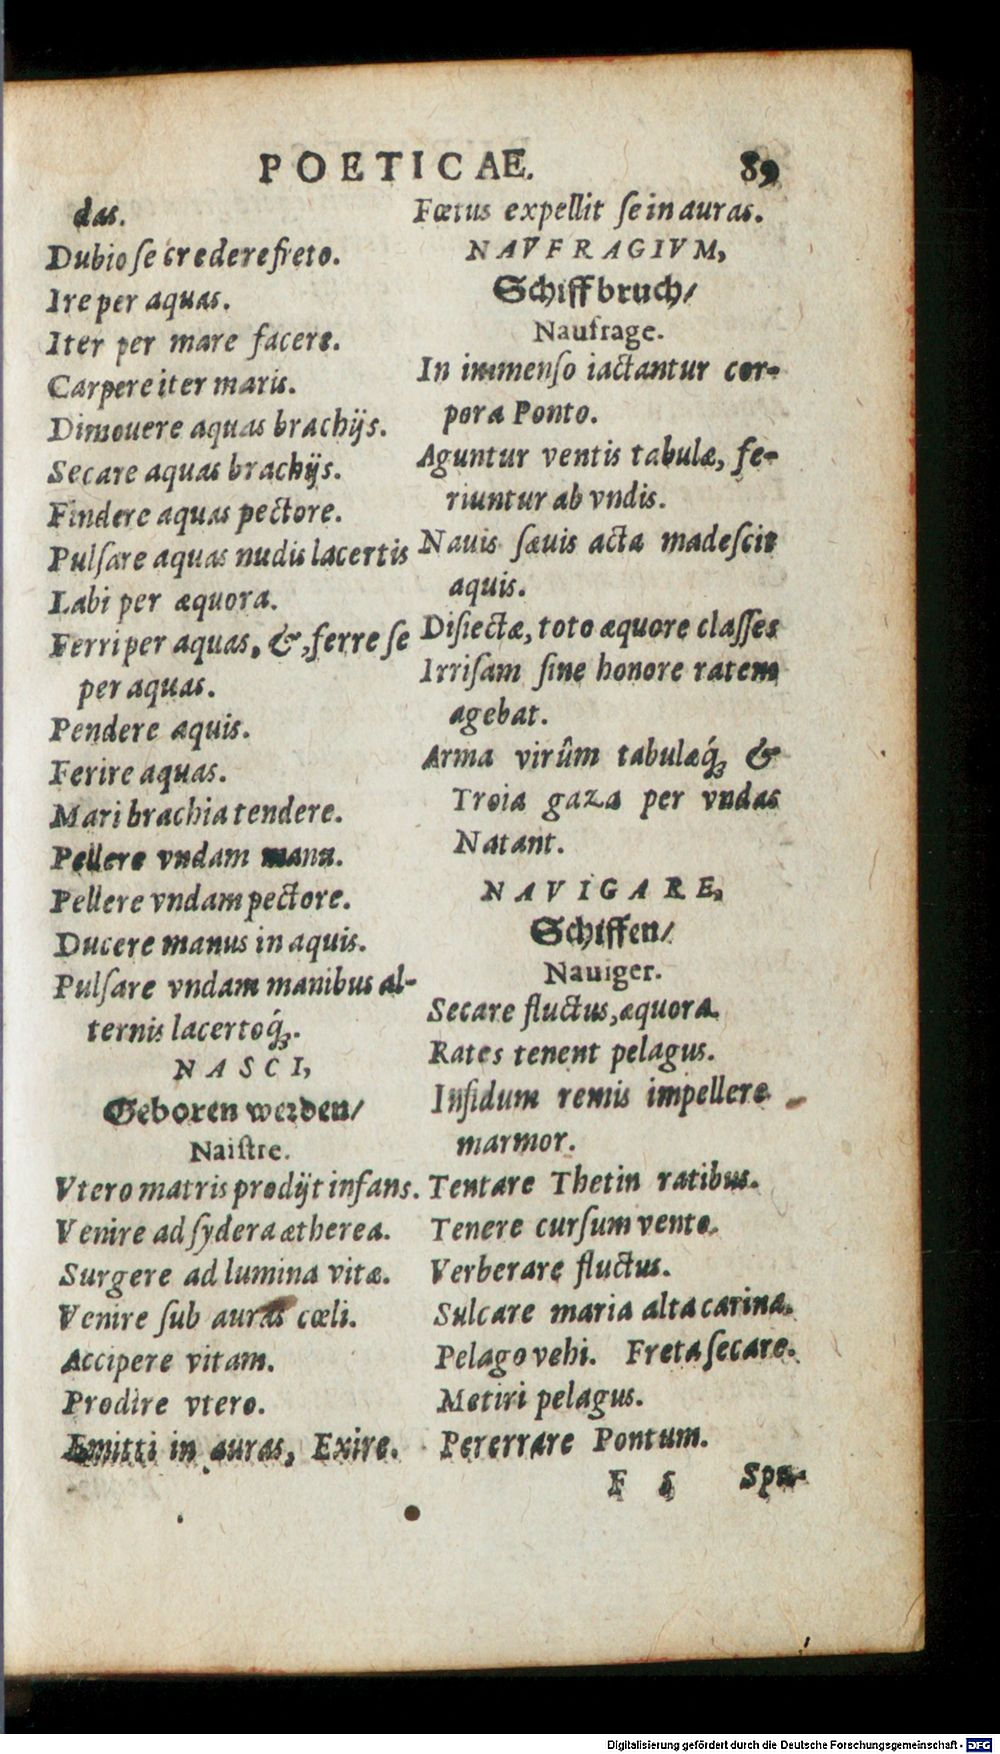 POETICAE. 89
das.
Dubio se credere freto.
Ire per aquas.
Iter per mare facere.
Carpere iter maris.
Dimouere aquas brachijs.
Secare aquas brachijs.
Findere aquas pectore.
Pulsare aquas nudis lacertis
Labi per æquora.
Ferri per aquas, &, ferre se
per aquas.
Pendere aquis.
Ferire aquas.
Mari brachia tendere.
Pellere vndam manu.
Pellere vndam pectore.
Ducere manus in aquis.
Pulsare vndam manibus al-
ternis lacertoq́;.
NASCI,
Geboren werden/
Naistre.
Vtero matris prodijt infans.
Venire ad sydera ætherea.
Surgere ad lumina vitæ.
Venire sub auras cœli.
Accipere vitam.
Prodire vtero.
Emitti in auras, Exire.
Fœtus expellit se in auras.
NAVFRAGIVM,
Schiffbruch/
Naufrage.
In immenso iactantur cor-
pora Ponto.
Aguntur ventis tabulæ, fe-
riuntur ab vndis.
Nauis sæuis acta madescit
aquis.
Disiectæ, toto æquore classes
Irrisam sine honore ratem
agebat.
Arma virûm tabulæq́; &
Troia gaza per vndas
Natant.
NAVIGARE,
Schiffen/
Nauiger.
Secare fluctus, æquora.
Rates tenent pelagus.
Insidum remis impellere
marmor.
Tentare Thetin ratibus.
Tenere cursum vento.
Verberare fluctus.
Sulcare maria alta carina.
Pelago vehi. Freta secare.
Metiri pelagus.
Pererrare Pontum.
F 5 Spu-
Digitalisierung gefördert durch die Deutsche Forschungsgemeinschaft - DFG